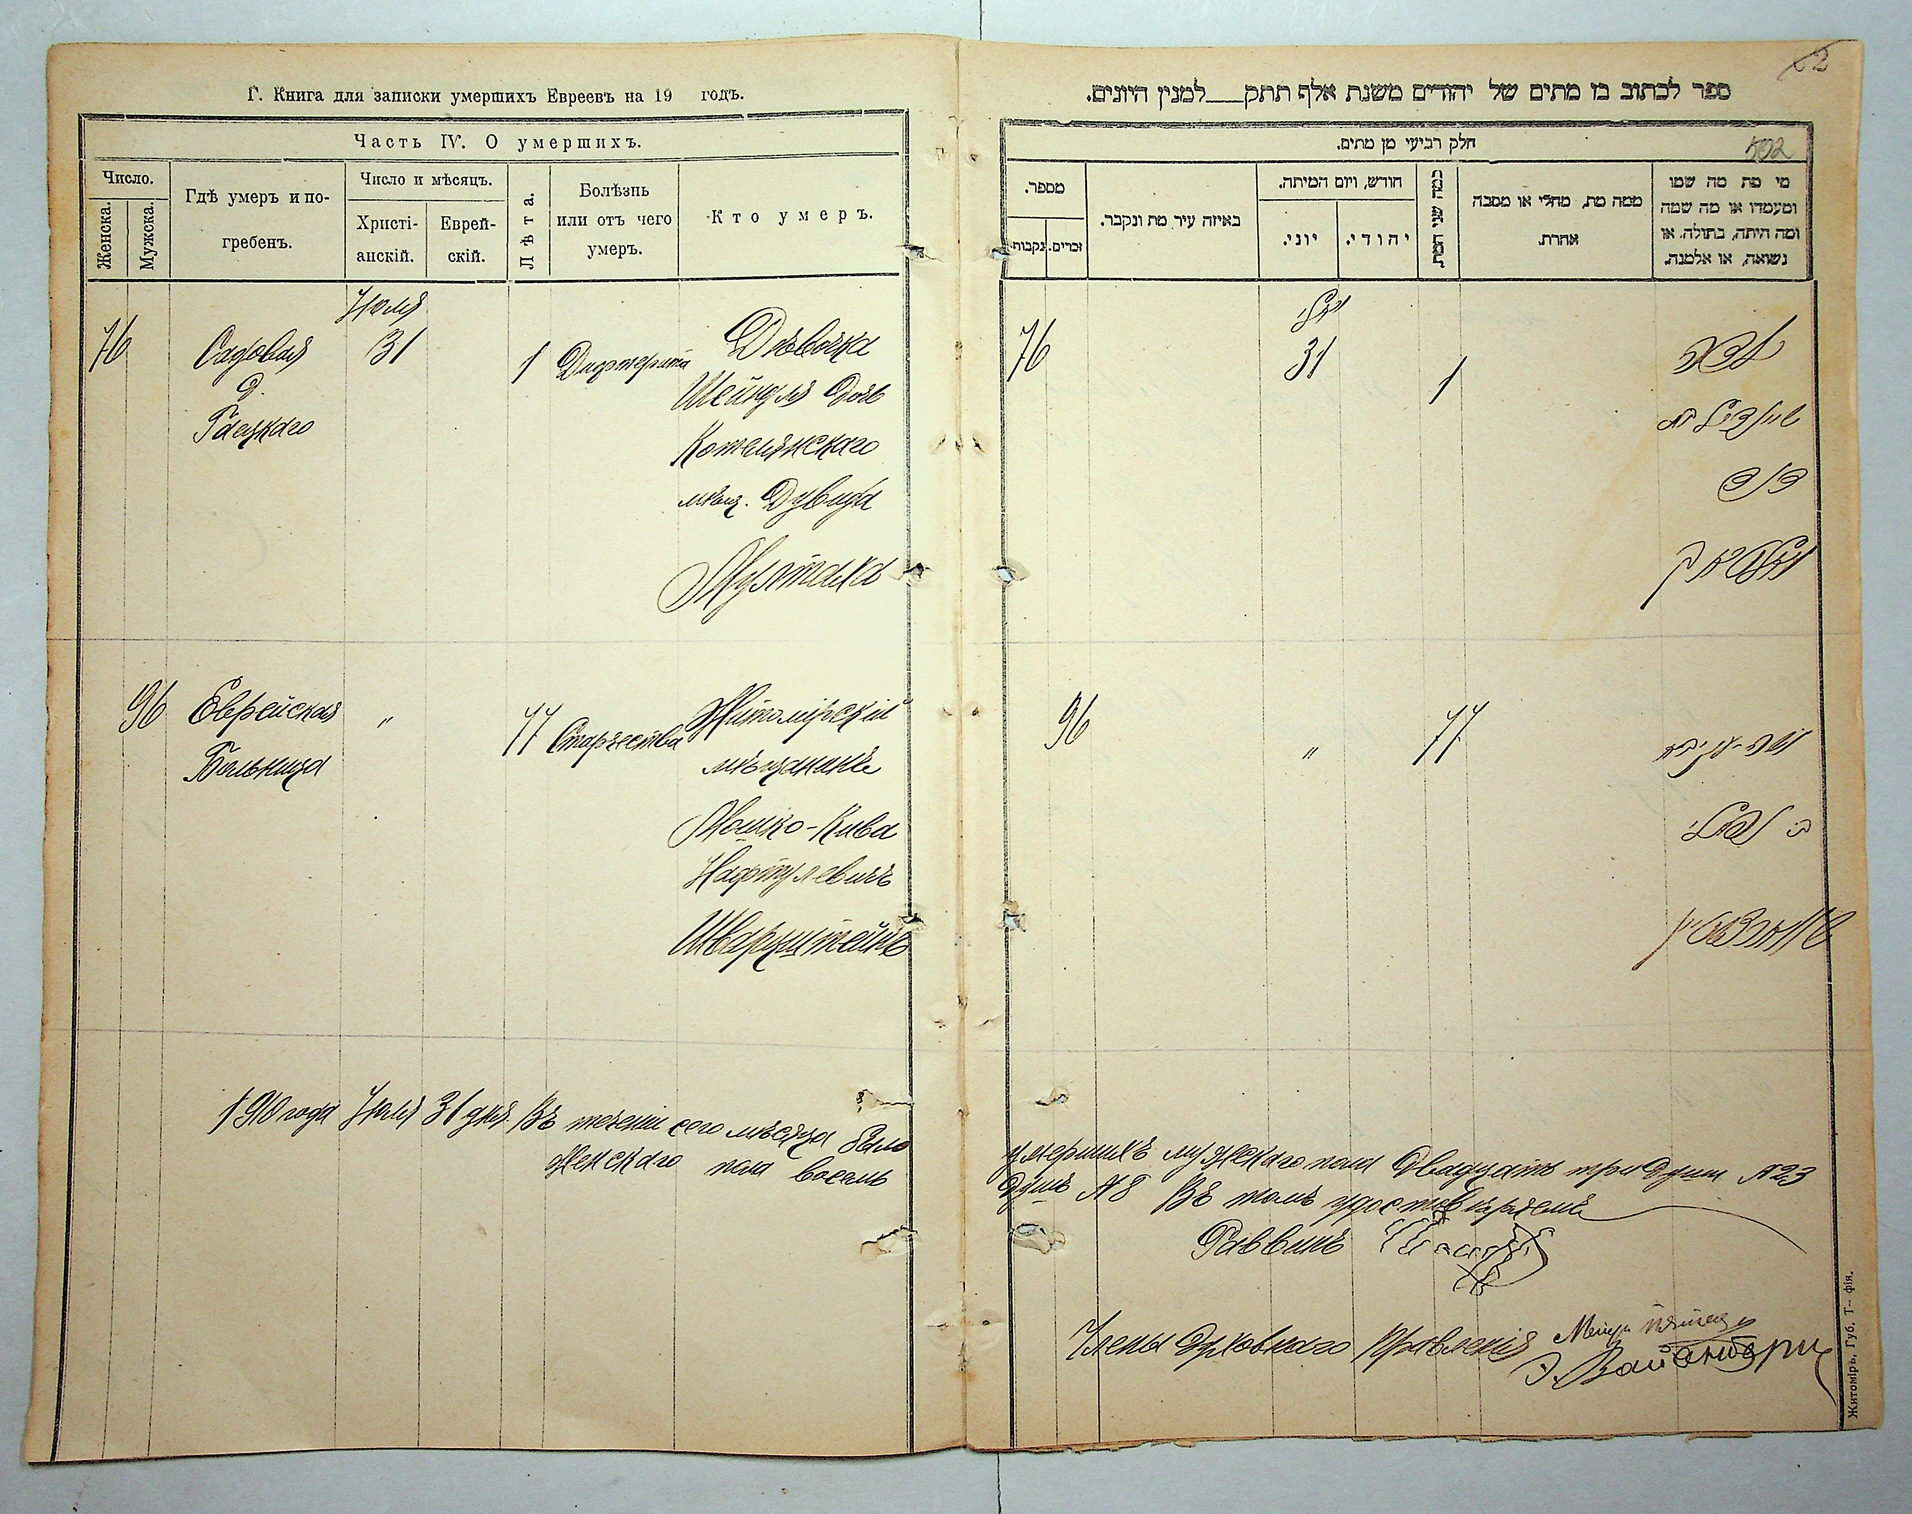 Г. Книга для записки умершихъ Евреевъ на 19 годъ.
Часть IV. О умершихъ.
Число.
Женска.
Мужска.
Гдѣ умеръ и по-
гребенъ.
Число и мѣсяцъ.
Христі-
анскій.
Еврей-
скій.
Лѣта.
Болѣзнь
или отъ чего
умеръ.
Кто умеръ.
Іюля
76 Садовая 31 1 Дифтерита Дѣвочка
д. Шейндля дочь
Котельнскаго
мѣщ. Дувида
96 Еврейская „ 77 Старчества Житомірскій
Больница мѣщанинъ
Мошко-Кива
Нафтулевичъ
Шварцштейнъ
1910 года Іюля 31 дня. Въ теченіи сего мѣсяца было
женскаго пола восемь
ספר לכתוב בו מתים של יהודים משנת אלף תתק___למנין היונים.
חלק רביעי מן מתים.
502
מספר.
נקבות.
זכרים.
באיזה עיר מת ונקבר.
חודש, ויום המיתה.
יוני.
יהודי.
כמה שני המת
ממה מת, מחלי או מסבה
אחרת.
מי מת מה שמו
ומעמדו או מה שמה
ומה היתה, בתולה, או
נשואה, או אלמנה.
יולי
76 31 1 ילדה
שיינדיל בת
דוד
96 „ 77 משה-עקיבא
בן נפתלי
שווארצשטיין
умершихъ мужскаго пола двадцать три души №23
душъ №8 Въ томъ удостовѣряемъ
Раввинъ
Члены Духовнаго Правленія
Житоміръ, Губ. Т-фія.